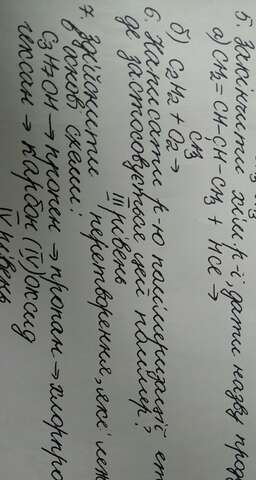 5. Закінчити хім. р-ї, дати назву прод
а) CH2 = CH - CH - CH3 + HCl →
CH3
б) C2H2 + O2 →
6. Написати р-ю полімеризації ет
де застосовується цей полімер?
III рівень
7. Здійснити перетворення, які леж
основі схеми:
C3H7OH → пропен → пропан → хлорпро
гексан → карбон (IV) оксид
IV рівень